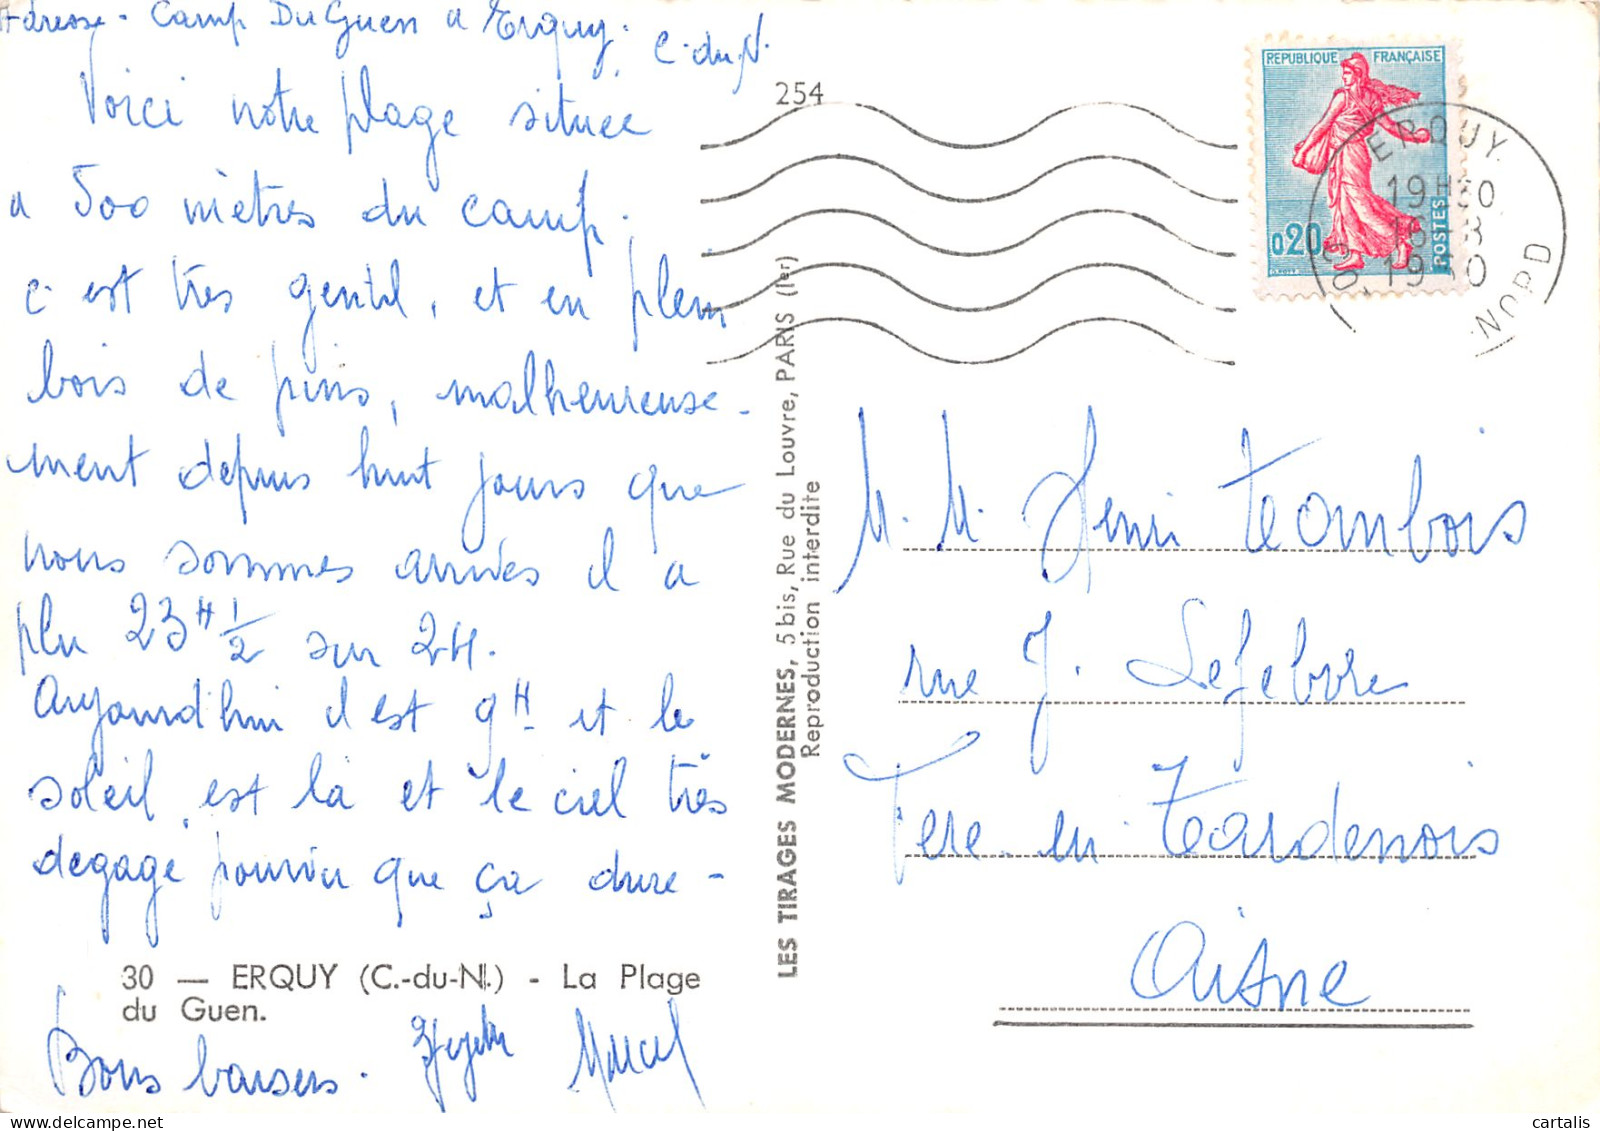 Adresse - Camp Du Guen a Erquy.
C.-du-N.
Voici notre plage située
a 500 mètres du camp.
c'est très gentil, et en plein
bois de pins, malheureuse-
ment depuis huit jours que
nous sommes arrivés il a
plu 23H 1/2 sur 24.
Aujourd'hui il est 9H et le
soleil est là et le ciel très
degagé pourvu que ça dure -
30 — ERQUY (C.-du-N.) - La Plage
du Guen.
Bons baisers. Marcel
254
LES TIRAGES MODERNES, 5 bis, Rue du Louvre, PARIS (Ier)
Reproduction interdite
REPUBLIQUE FRANÇAISE
0,20
POSTES
ERQUY
19H30
1960
NORD
M. M. Henri
rue J. Lefebvre
Fere en Tardenois
Aisne
cartalis
delcampe.net